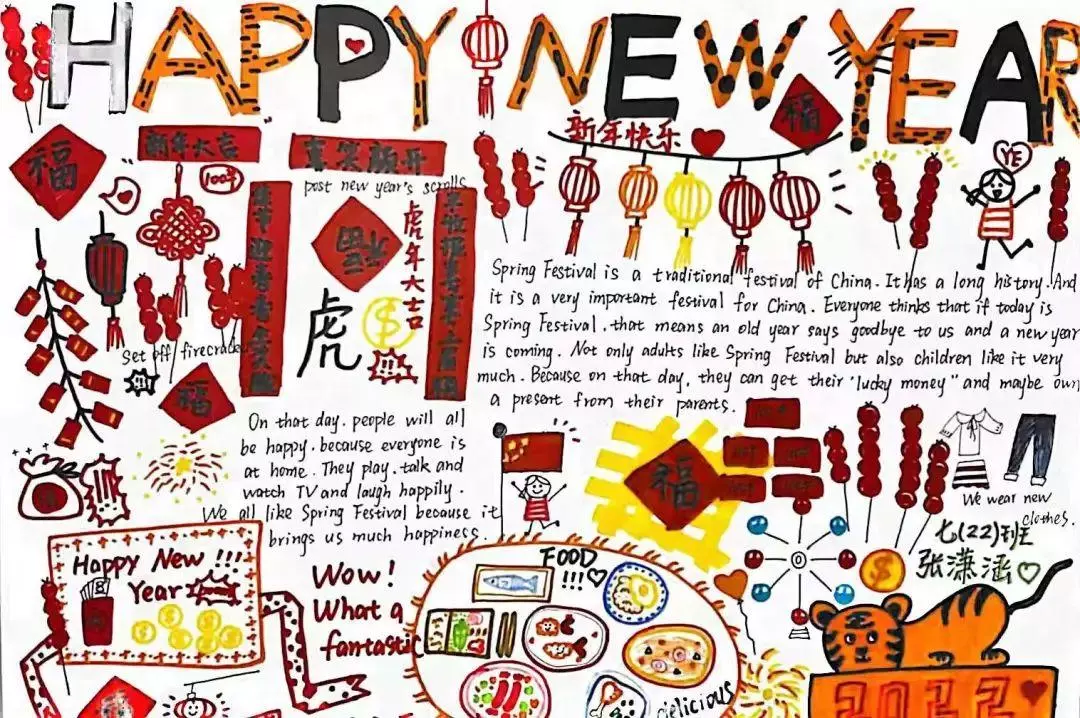 HAPPY NEW YEAR
福
新年大吉
喜笑颜开
post new year's scrolls
100年
福
虎年大吉
虎
$
Set off firecracker
福
新年快乐
福
YE
Spring Festival is a traditional festival of China. It has a long history. And
it is a very important festival for China. Everyone thinks that if today is
Spring Festival, that means an old year says goodbye to us and a new year
is coming. Not only adults like Spring Festival but also children like it very
much. Because on that day, they can get their "lucky money" and maybe own
a present from their parents.
On that day, people will all
be happy, because everyone is
at home. They play, talk and
watch TV and laugh happily.
We all like Spring Festival because it
brings us much happiness.
福
We wear new
clothes.
七(22)班
张潇涵
$
Happy New !!!
Year
Wow!
What a
fantastic
FOOD
!!!
delicious
2022